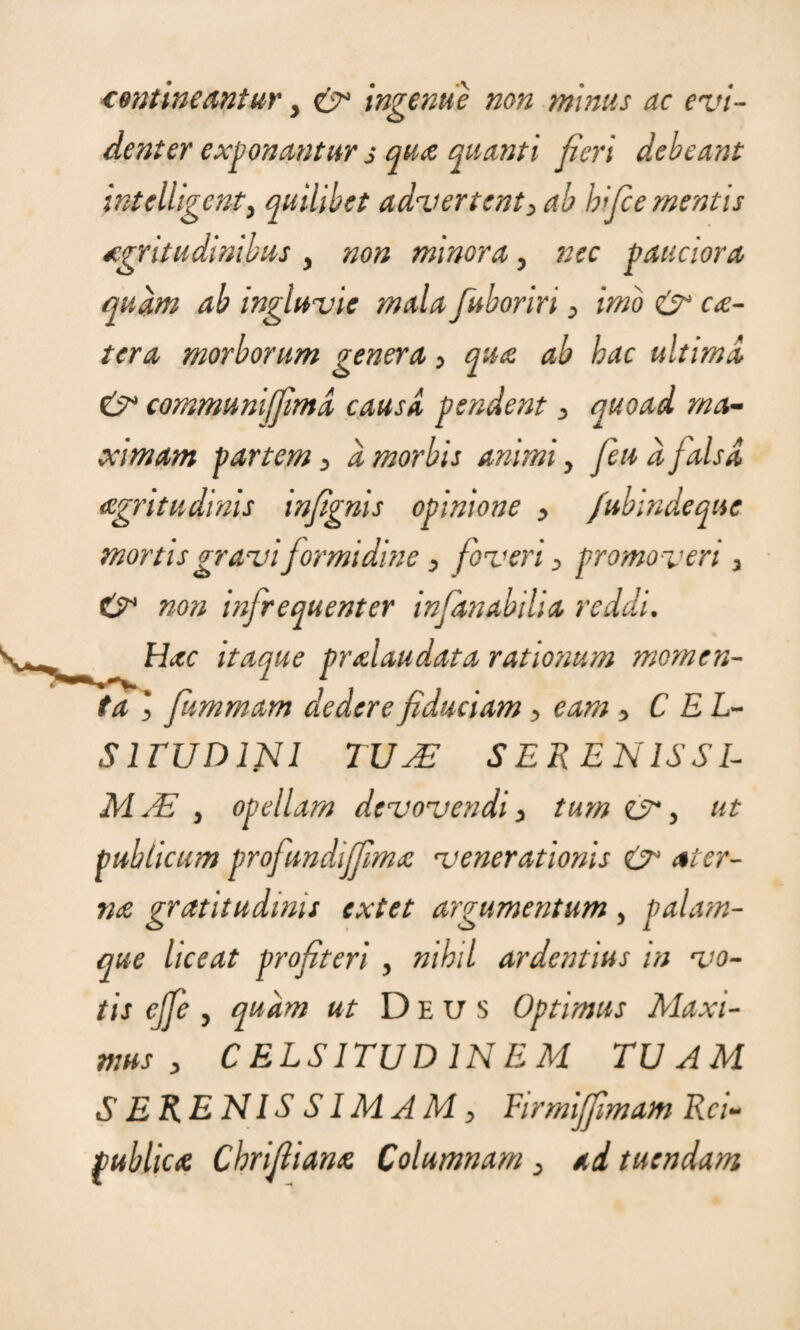 contineantur, & ingenuè non minus ac evi-
denter exponantur; quæ quanti fieri debeant
intelligent, quilibet advertent, ab hiſce mentis
ægritudinibus, non minora, nec pauciora
quàm ab ingluvie mala ſuboriri, imò & cæ-
tera morborum genera, quæ ab hac ultimâ
& communiſſimâ causâ pendent, quoad ma-
ximam partem, à morbis animi, ſeu à falsâ
ægritudinis inſignis opinione, ſubindeque
mortis gravi formidine, foveri, promoveri,
& non infrequenter inſanabilia reddi.
Hæc itaque prælaudata rationum momen-
ta, ſummam dedere fiduciam, eam, CEL-
SITUDINI TUÆ SERENISSI-
MÆ, opellam devovendi, tum &, ut
publicum profundiſſimæ venerationis & æter-
næ gratitudinis extet argumentum, palam-
que liceat profiteri, nihil ardentius in vo-
tis eſſe, quàm ut DEUS Optimus Maxi-
mus, CELSITUDINEM TUAM
SERENISSIMAM, Firmiſſimam Rei-
publicæ Chriſtianæ Columnam, ad tuendam